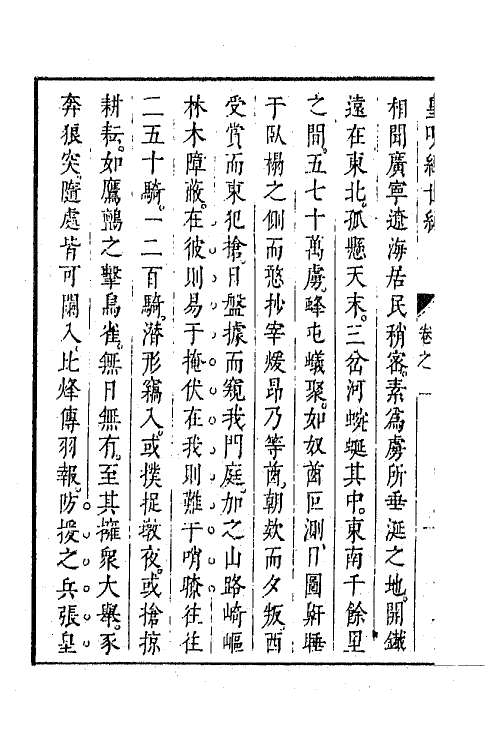 皇明經世編
卷之一
相聞廣寧遼海居民稍密素為虜所垂涎之地開鐵
遠在東北孤懸天末三岔河蜿蜒其中東南千餘里
之間五七十萬虜蜂屯蟻聚如奴酋叵測日圖鼾睡
于臥榻之側而憨抄宰煖昂乃等酋朝欵而夕叛西
受賞而東犯搶日盤據而窺我門庭加之山路崎嶇
林木障蔽在彼則易于掩伏在我則難于哨瞭往往
二五十騎一二百騎潛形竊入或撲捉墩夜或搶掠
耕耘如鷹鸇之擊鳥雀無日無有至其擁衆大舉豕
奔狼突隨處皆可闌入比烽傳羽報防援之兵張皇